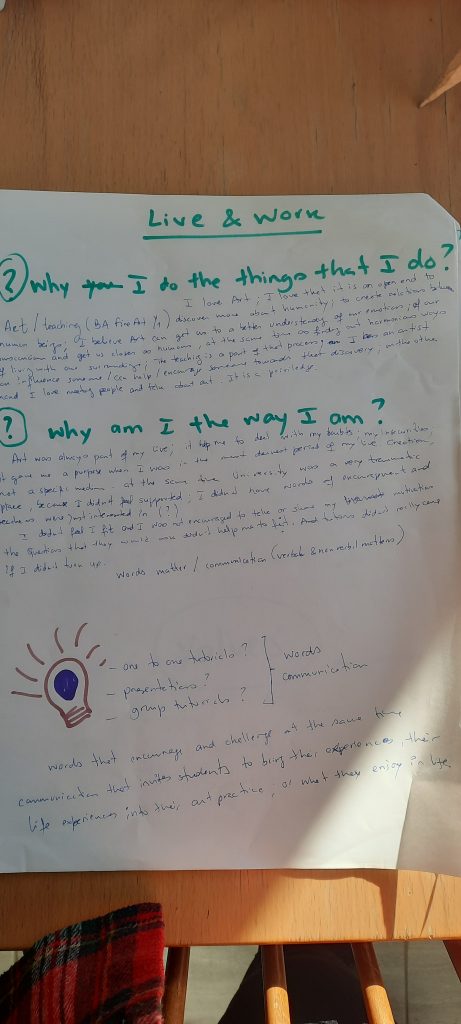 Live & Work
? Why I do the things that I do?
I love Art; I love that it is an open end to
Art / teaching (BA fine Art Y1) discover more about humanity; to create relations between
human beings; I believe Art can get us to a better understanding of our emotions, of our
and get us closer as humans, at the same time as finding out harmonious ways
of living with our surroundings; The teaching is a part of that process; I an artist
can influence someone / can help / encourage someone towards that discovery, in the other
hand I love meeting people and talk about art. It is a privilege.
? Why am I the way I am?
Art was always part of my live; it help me to deal with my doubts, my insecurities,
it gave me a purpose when I was in the most darkest period of my live. Creation,
not a specific medium. at the same time University was a very traumatic
place, because I didn't feel supported; I didn't have words of encouragement and
teachers were just interested in (?)
I didn't feel I fit and I was not encouraged to talk or share my motivation
the questions that they would ask didn't help me to fit. And tutors didn't really care
if I didn't turn up.
Words matter / communication (verbal & non verbal matters)
- one to one tutorials?
- presentations?
- group tutorials?
words
communication
words that encourage and challenge at the same time
communication that invites students to bring their experiences, their
life experiences into their art practice, or what they enjoy in life